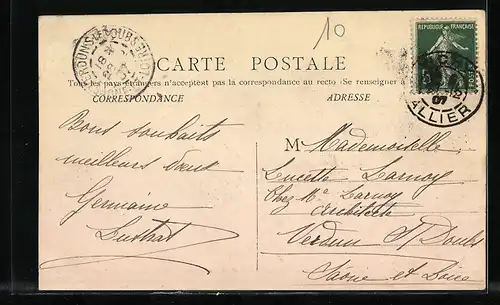 10
RÉPUBLIQUE FRANÇAISE
CARTE POSTALE
Tous les pays étrangers n'acceptent pas la correspondance au recto (Se renseigner à
CORRESPONDANCE ADRESSE
07
ALLIER
Bons souhaits
meilleurs vœux
Germaine
M Mademoiselle
Lucette Larnoy
Chez Mr Larnoy
Architecte
Verdun S/ Doubs
Saone et Loire